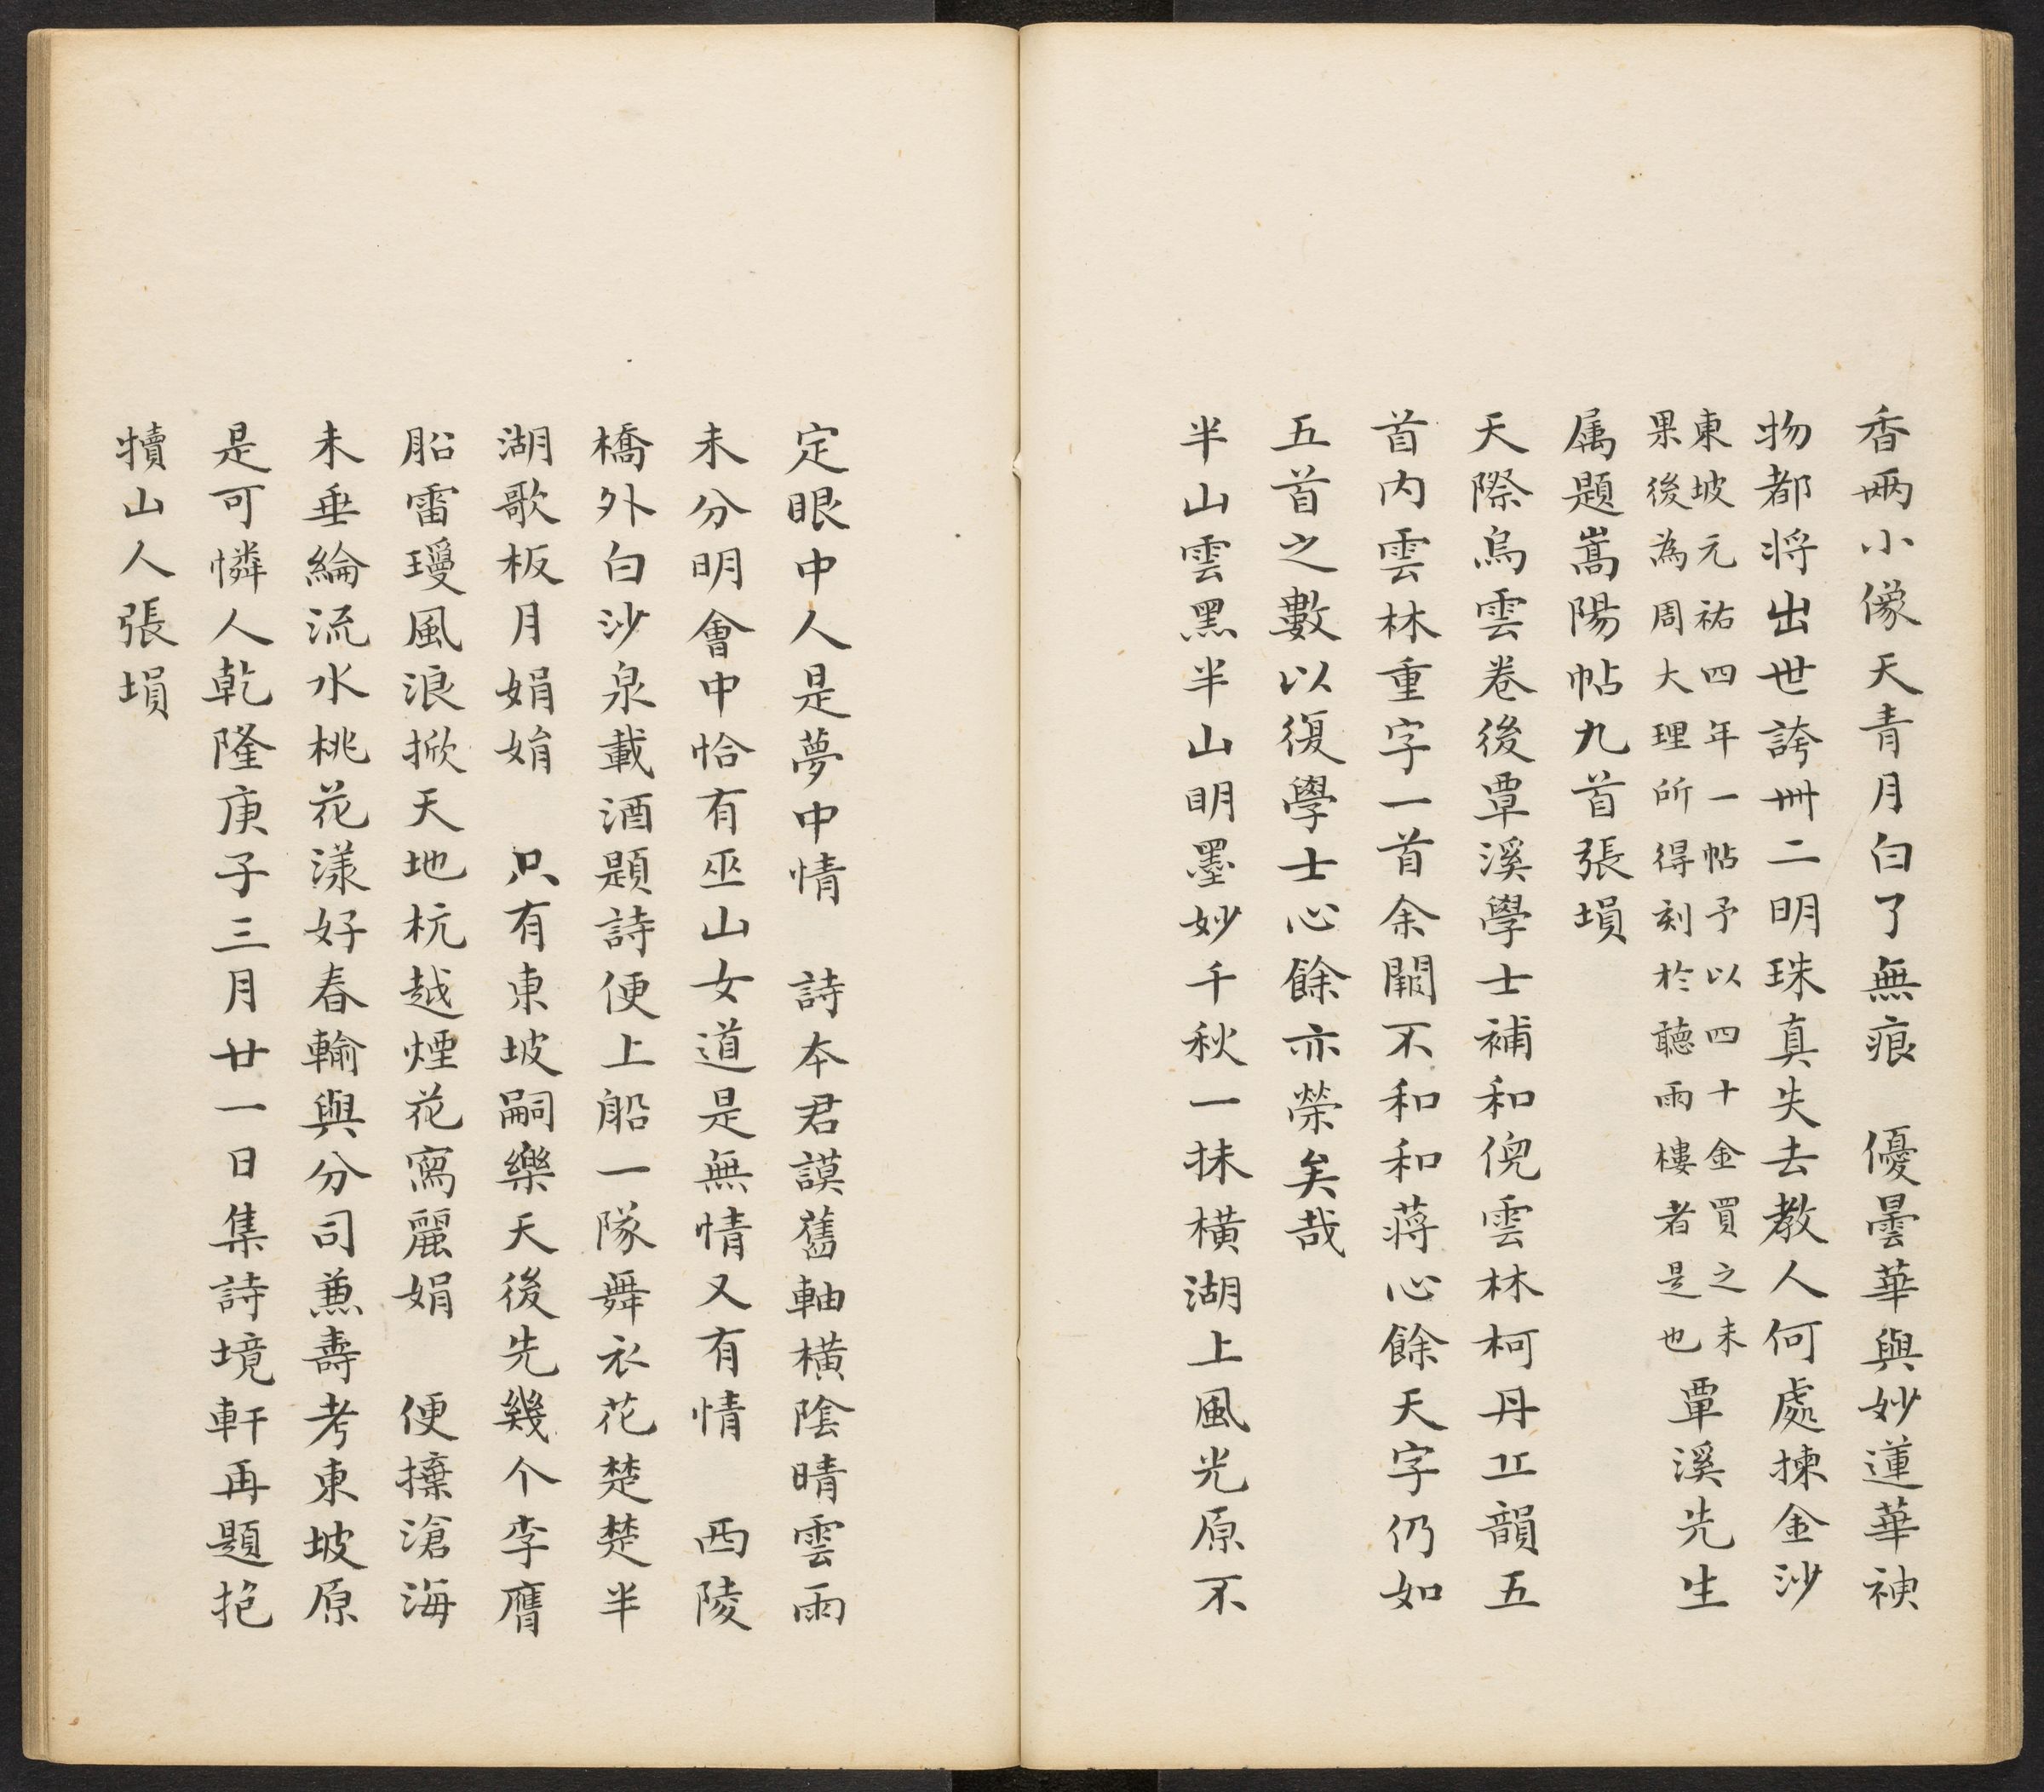 香兩小像天青月白了無痕　優曇華與妙蓮華神
物都將出世誇卌二明珠真失去教人何處揀金沙
東坡元祐四年一帖予以四十金買之未
果後為周大理所得刻於聽雨樓者是也
覃溪先生
属題嵩陽帖九首張塤
天際烏雲卷後覃溪學士補和倪雲林柯丹丘韻五
首內雲林重字一首余闕不和和蔣心餘天字仍如
五首之數以復學士心餘亦榮矣哉
半山雲黑半山明墨妙千秋一抹橫湖上風光原不
定眼中人是夢中情　詩本君謨舊軸橫陰晴雲雨
未分明會中恰有巫山女道是無情又有情　西陵
橋外白沙泉載酒題詩便上船一隊舞衣花楚楚半
湖歌板月娟娟　只有東坡嗣樂天後先幾个李膺
船雷璦風浪掀天地杭越煙花寫麗娟　便擲滄海
未垂綸流水桃花漾好春輪與分司兼壽考東坡原
是可憐人乾隆庚子三月廿一日集詩境軒再題抱
犢山人張塤